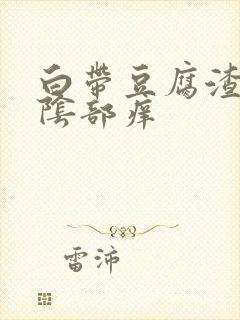 白帶豆腐渣
陰部痒
雷沛